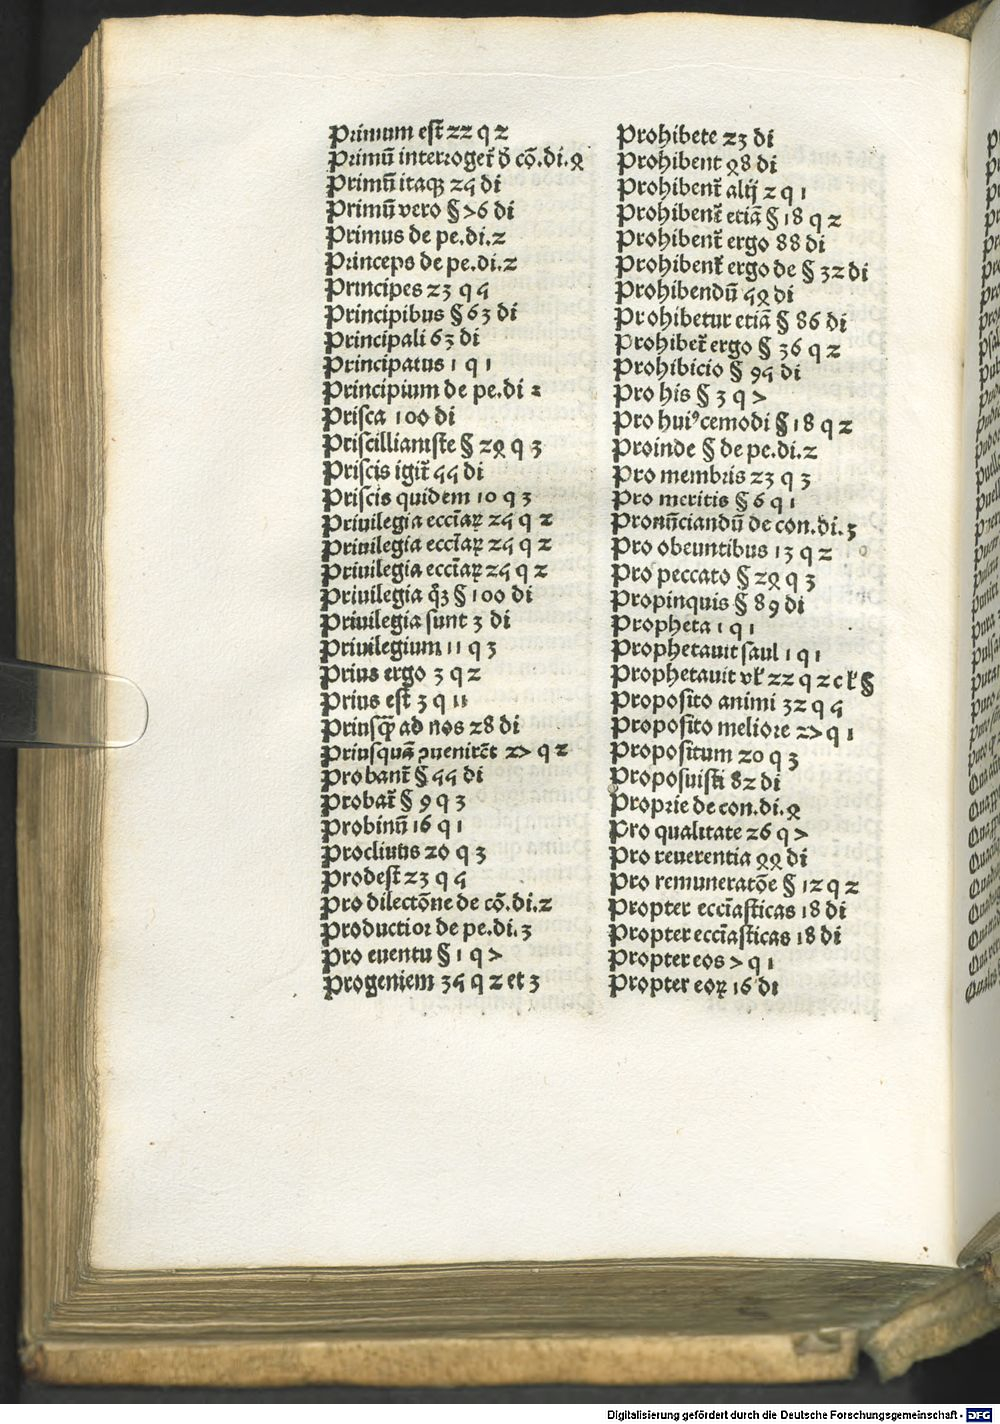 Primum est 22 q 2
Primū interroget̄ d̄ cō.di.4
Primū itaqꝫ 25 di
Primū vero § 76 di
Primus de pe.di.2
Princeps de pe.di.2
Principes 23 q 5
Principibus § 63 di
Principali 63 di
Principatus 1 q 1
Principium de pe.di 2
Prisca 100 di
Priscillianiste § 24 q 3
Priscis igit̄ 55 di
Priscis quidem 10 q 3
Priuilegia eccīaꝝ 25 q 2
Priuilegia eccīaꝝ 25 q 2
Priuilegia eccīaꝝ 25 q 2
Priuilegia q̄ꝫ § 100 di
Priuilegia sunt 3 di
Priuilegium 11 q 3
Prius ergo 3 q 2
Prius est 3 q 11
Priusq̄ ad nos 28 di
Priusquā ꝯuenirēt 27 q 2
Probant̄ § 55 di
Probat̄ § 9 q 3
Probinū 16 q 1
Procliuis 20 q 3
Prodest 23 q 5
Pro dilectōne de cō.di.2
Productior de pe.di.3
Pro euentu § 1 q 7
Progeniem 35 q 2 et 3
Prohibete 23 di
Prohibent 48 di
Prohibent̄ alij 2 q 1
Prohibent̄ etiā § 18 q 2
Prohibent̄ ergo 88 di
Prohibent̄ ergo de § 32 di
Prohibendū 54 di
Prohibetur etiā § 86 di
Prohibet̄ ergo § 36 q 2
Prohibicio § 95 di
Pro his § 3 q 7
Pro huiꝰcemodi § 18 q 2
Proinde § de pe.di.2
Pro membris 23 q 3
Pro meritis § 6 q 1
Pronūciandū de con.di.3
Pro obeuntibus 13 q 2
Pro peccato § 24 q 3
Propinquis § 89 di
Propheta 1 q 1
Prophetauit saul 1 q 1
Prophetauit vł 22 q 2 c ł §
Proposito animi 32 q 5
Proposito meliore 27 q 1
Propositum 20 q 3
Proposuisti 82 di
Proprie de con.di.4
Pro qualitate 26 q 7
Pro reuerentia 44 di
Pro remuneratōe § 12 q 2
Propter eccīasticas 18 di
Propter eccīasticas 18 di
Propter eos 7 q 1
Propter eoꝝ 16 di
Digitalisierung gefördert durch die Deutsche Forschungsgemeinschaft - DFG